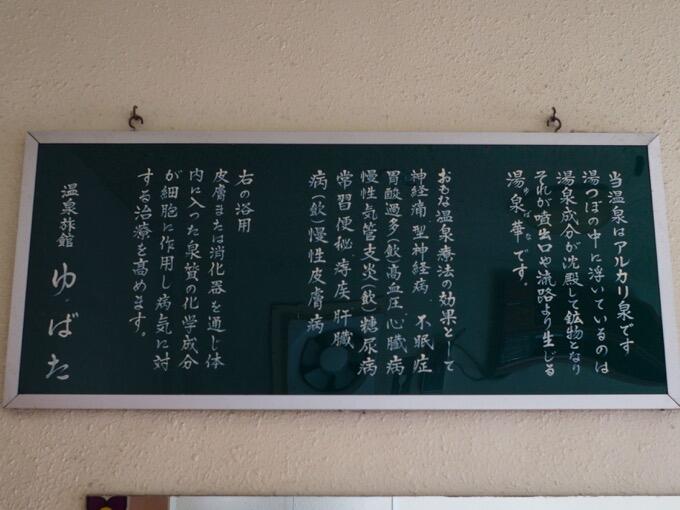 当温泉はアルカリ泉です
湯つぼの中に浮いているのは
湯泉成分が沈殿して鉱物となり
それが噴出口や流路より生じる
湯泉華です。
ゆばな
おもな温泉療法の効果として
神経痛型神経病 不眠症
胃酸過多(飲)高血圧 心臓病
慢性気管支炎(飲)糖尿病
常習便秘 痔疾 肝臓
病(飲)慢性皮膚病
右の浴用
皮膚または消化器を通じ体
内に入った泉質の化学成分
が細胞に作用し病気に対
する治療を高めます。
温泉旅館 ゆばた